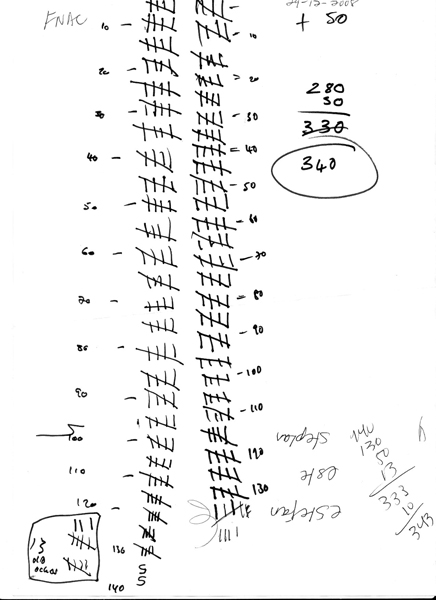 FNAC
24-12-2008
+ 50
10
20
30
40
50
60
70
80
90
100
110
120
130
140
10
20
30
40
50
60
70
80
90
100
110
120
130
280
50
330
340
13
5
5
140
130
50
13
333
10
343
Stephan
este
estefan